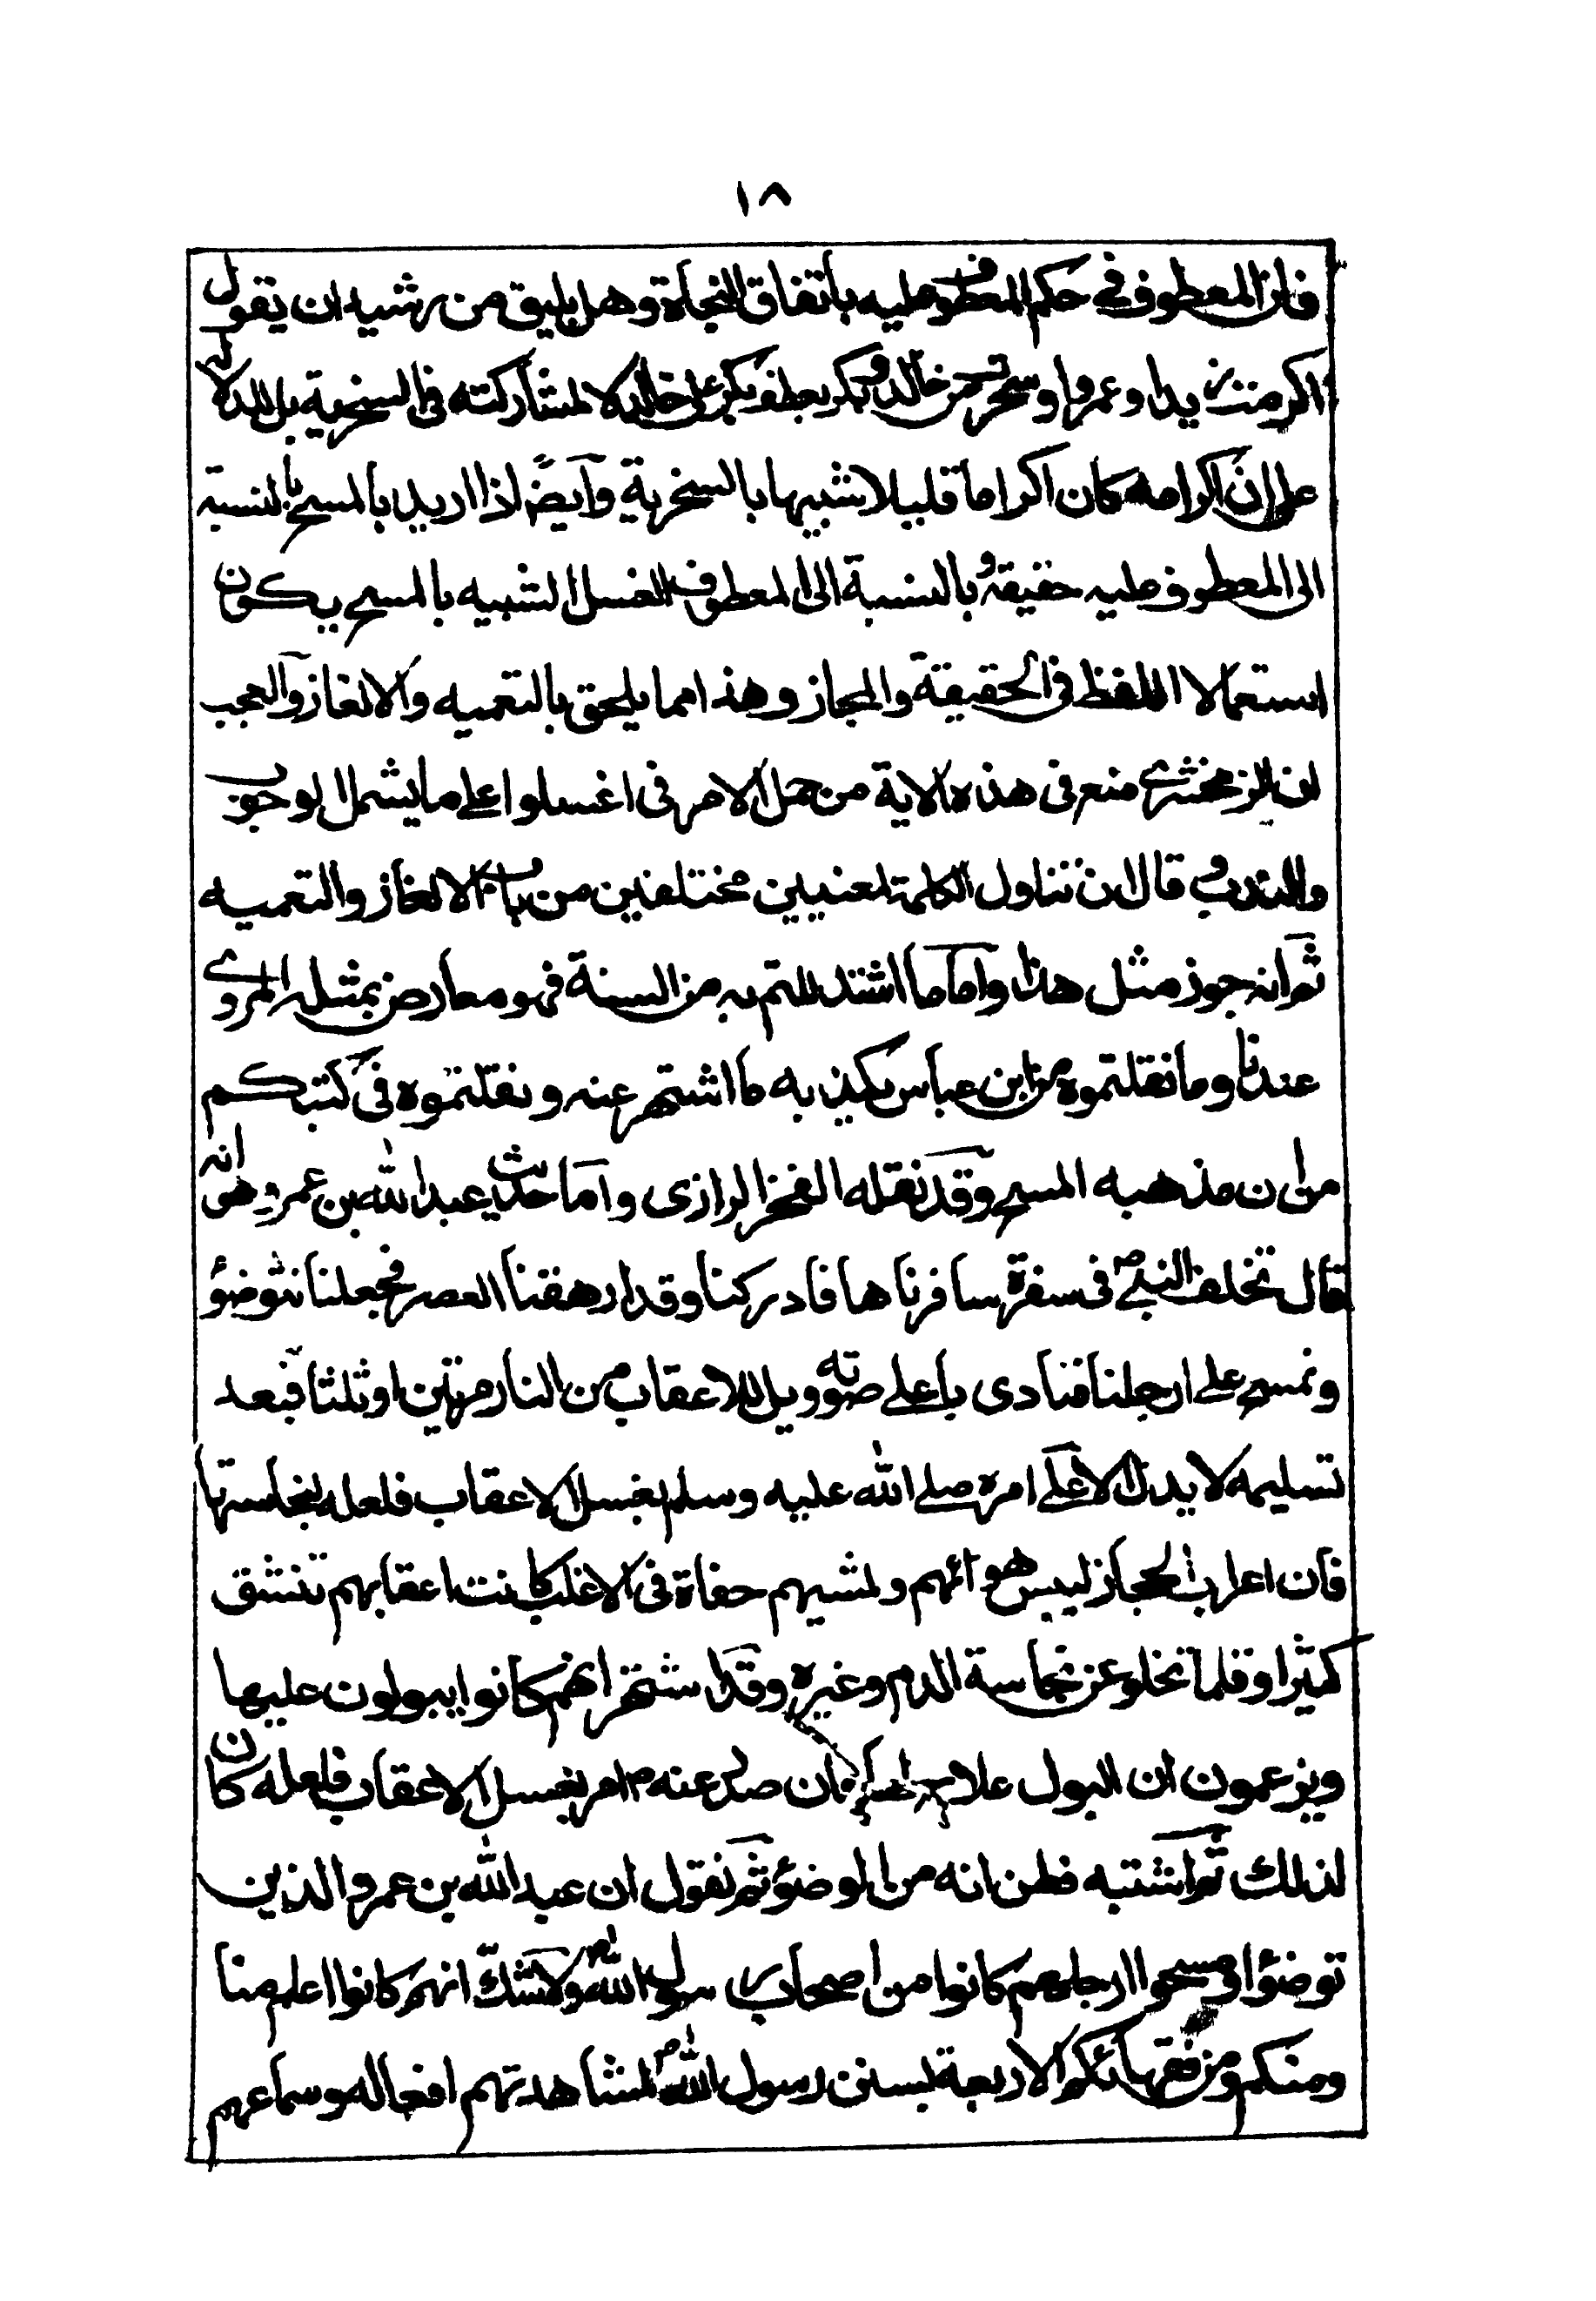 ١٨
فان المعطوف في حكم المعطوف عليه باتفاق النحاة وهل يليق من رشيد ان يقول
اكرمت زيدا وعمروا وسخرت من خالد وبكر بعطف بكر على خالد لا لمشاركته في السخرية بل للدلالة
على ان اكرامه كان اكراما قليلا شبيها بالسخرية وايضا اذا اريد بالمسح بالنسبة
الى المعطوف عليه حقيقة وبالنسبة الى المعطوف الغسل الشبيه بالمسح يكون
استعمالا اللفظ في الحقيقة والمجاز وهذا مما يلحق بالتعميه والالغاز والعجب
ان الزمخشري منع في هذه الاية من حمل الامر في اغسلوا على ما يشمل الوجوب
والندب وقال ان تناول الكلمة لمعنيين مختلفين من باب الالغاز والتعميه
ثم انه جوز مثل هذا واما ما اشتد للتم به من السنة فهو معارض بمثله المروي
عندنا وما نقلتموه من ابن عباس يكذبه ما اشتهر عنه ونقلتموه في كتبكم
من ان مذهبه المسح وقد نقله الفخر الرازي واما حديث عبد الله بن عمر وهي انه
قال تخلف النبي ص في سفرة سافرناها فادركنا وقد ارهقنا العصر فجعلنا نتوضؤ
ونمسح على ارجلنا فنادى باعلى صوته ويل للاعقاب من النار مرتين او ثلثا فبعد
تسليمه لا يدل الا على امره صلى الله عليه وسلم بغسل الاعقاب فلعله لنجاستها
فان اعراب الحجاز ليبس هوائهم ولمشيهم حفاة في الاغلب كانت اعقابهم تنشق
كثيرا وقلما تخلو عن نجاسة الدم وغيره وقد اشتهر انهم كانوا يبولون عليها
ويزعمون ان البول علاج فان صدر عنه ص امر بغسل الاعقاب فلعله كان
لذلك ثم اشتبه فظن انه من الوضوء ثم نقول ان عبد الله بن عمرو الذين
توضؤا ومسحوا ارجلهم كانوا من اصحاب رسول الله ص ولا شك انهم كانوا اعلم منا
ومنكم ومن فقهائكم الاربعة بسنن رسول الله ص لمشاهدتهم افعاله وسماعهم